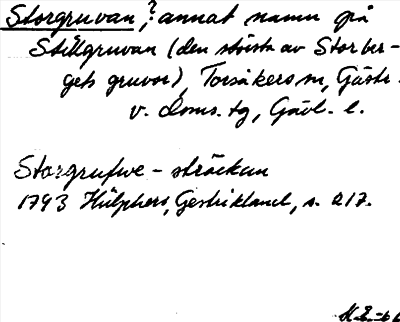 Storgruvan,? annat namn på
Stillgruvan (den största av Storber-
gets gruvor), Torsåkers sn, Gästr.
v. doms. tg, Gävl. l.
Storgrufwe-sträckan
1793 Hülphers, Gestrikland, s. 217.